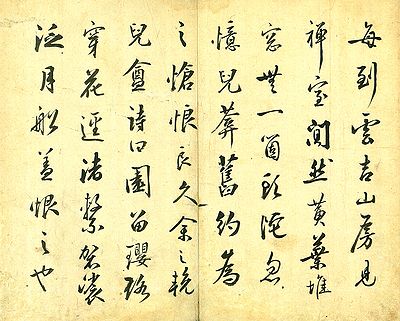 每到雲吉山房見
禪室闃然黃葉堆
窓無一箇頭陀忽
憶兒菴舊約為
之愴恨良久余之輓
兒盦詩曰園留瓔珞
穿花逕渚繫袈裟
泛月船蓋恨之也